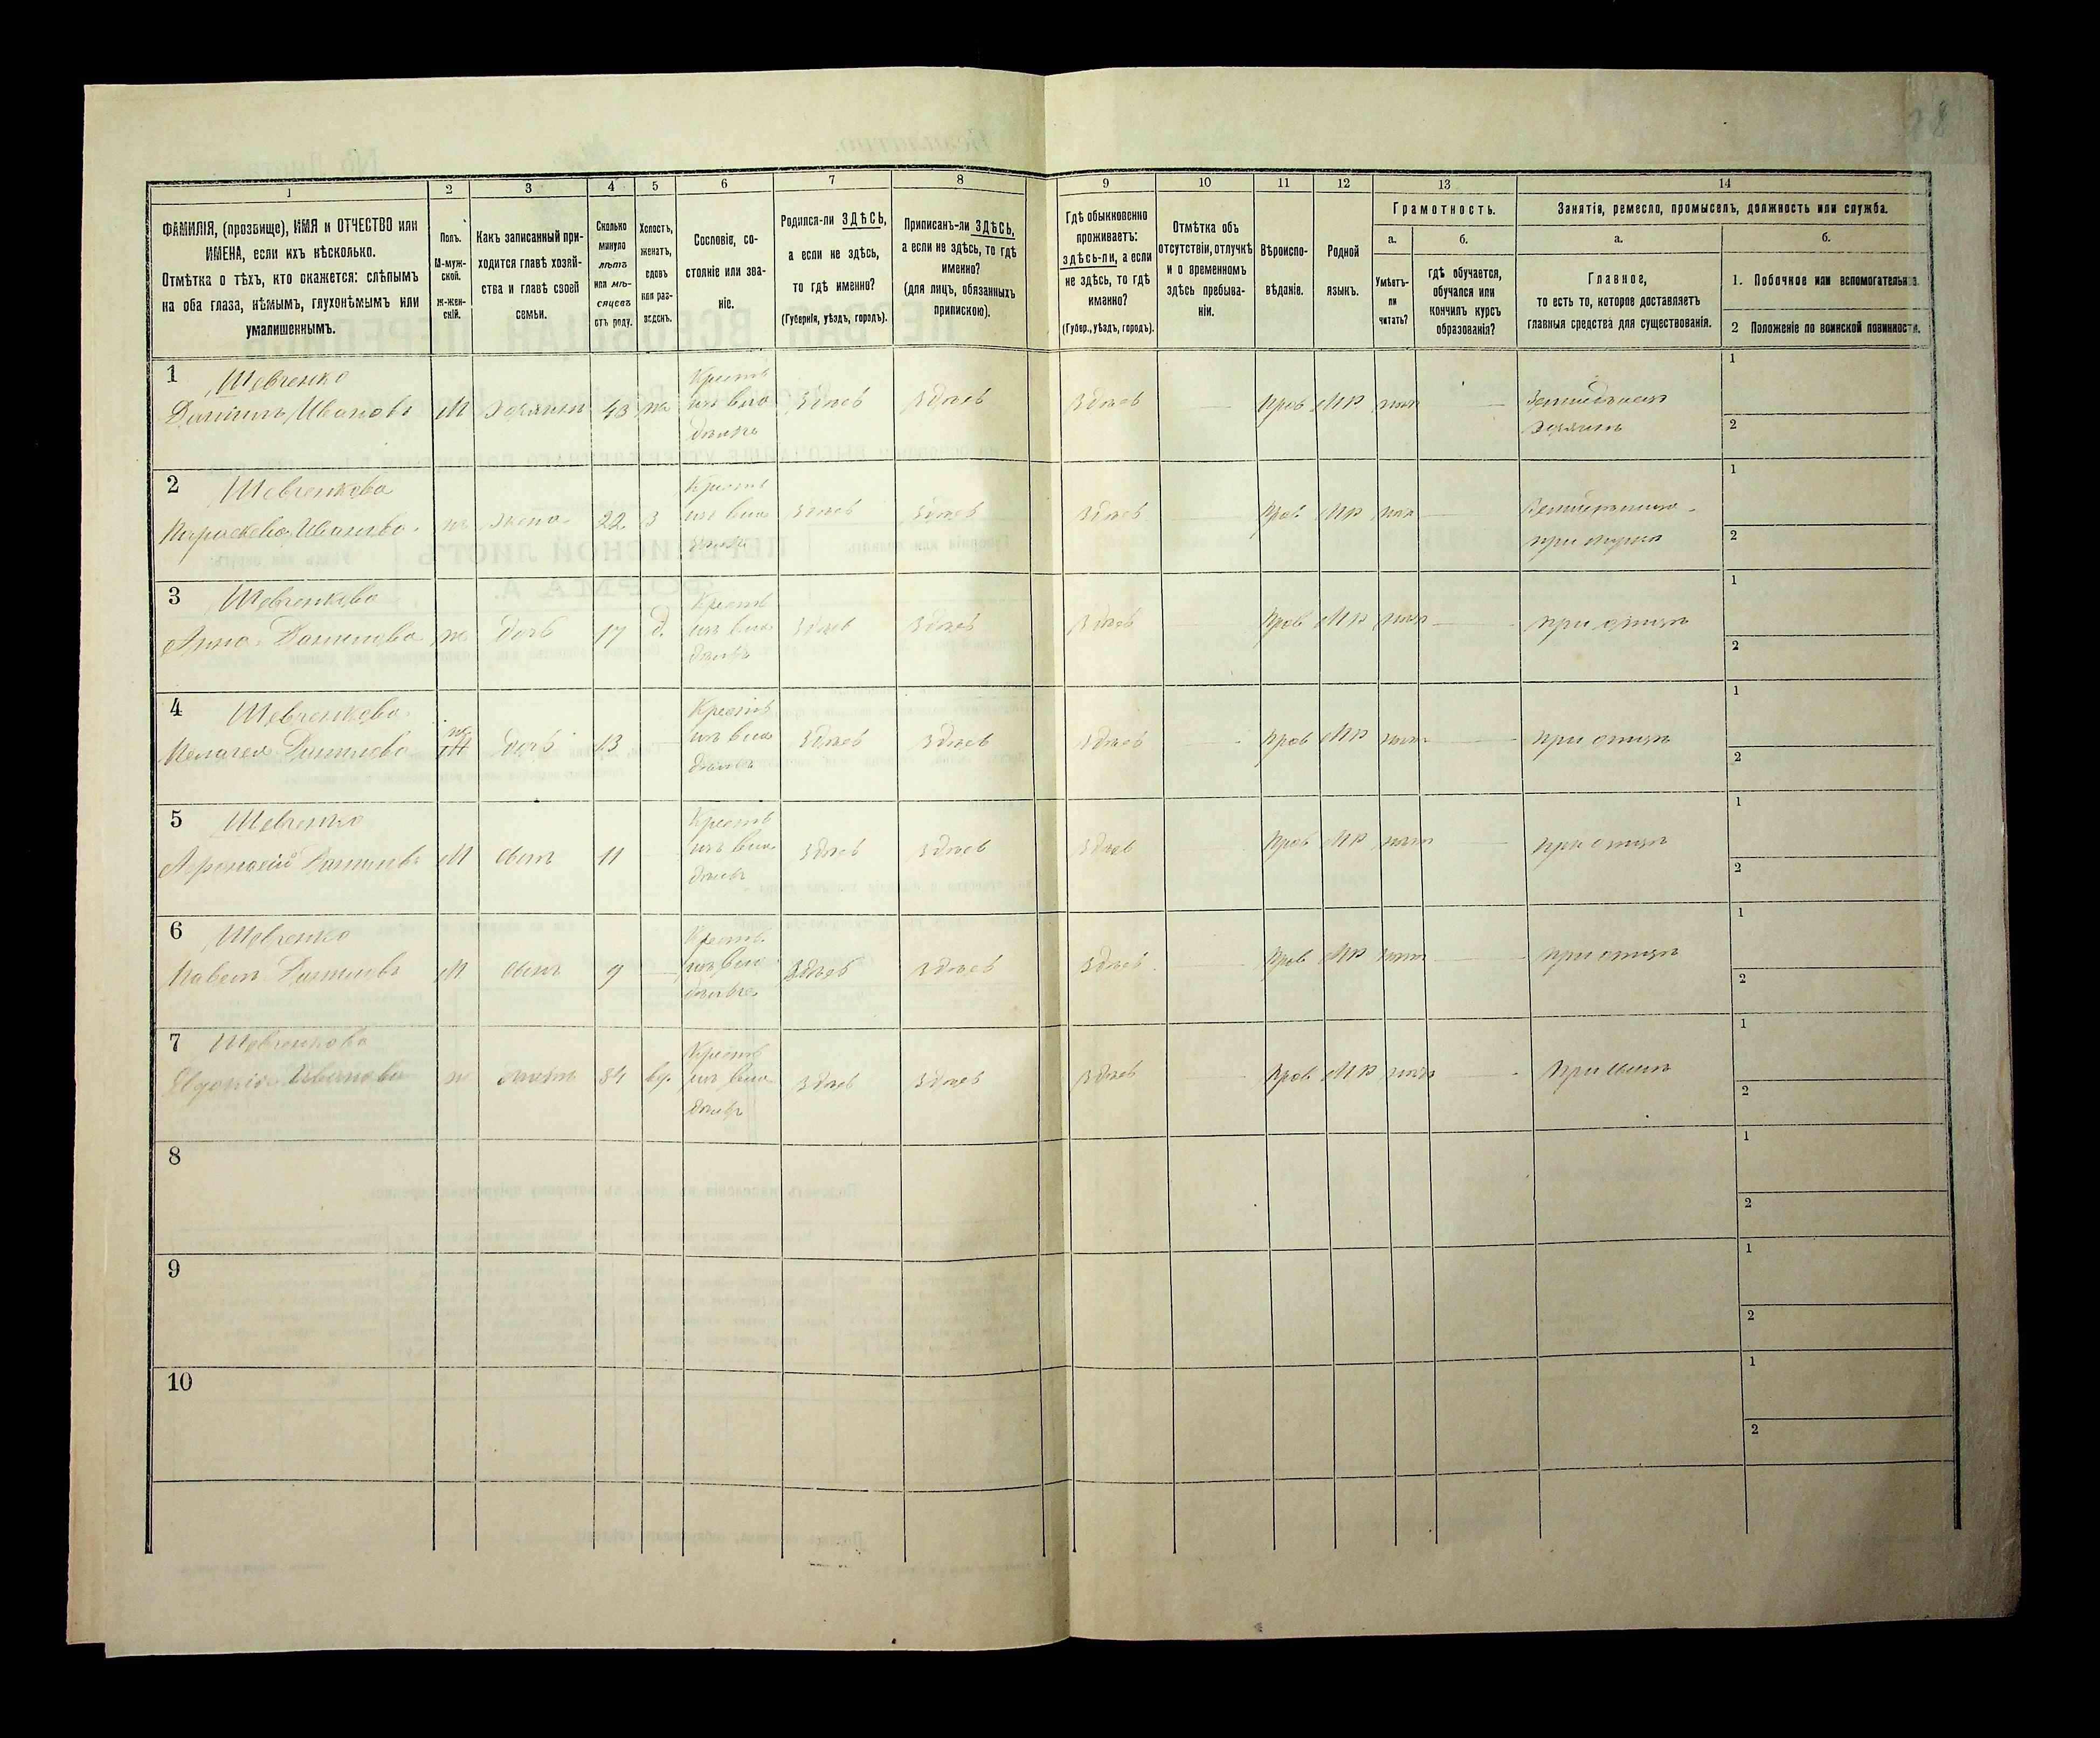 1 2 3 4 5 6 7 8 9 10 11 12 13 14
ФАМИЛІЯ, (прозвище), ИМЯ и ОТЧЕСТВО или
ИМЕНА, если ихъ нѣсколько.
Отмѣтка о тѣхъ, кто окажется: слѣпымъ
на оба глаза, нѣмымъ, глухонѣмымъ или
умалишеннымъ.
Полъ.
М-муж-
ской.
Ж-жен-
скій.
Какъ записанный при-
ходится главѣ хозяй-
ства и главѣ своей
семьи.
Сколько
минуло
лѣтъ
или мѣ-
сяцевъ
отъ роду.
Холостъ,
женатъ,
вдовъ
или раз-
веденъ.
Сословіе, со-
стояніе или зва-
ніе.
Родился-ли ЗДѢСЬ,
а если не здѣсь,
то гдѣ именно?
(Губернія, уѣздъ, городъ).
Приписанъ-ли ЗДѢСЬ,
а если не здѣсь, то гдѣ
именно?
(для лицъ, обязанныхъ
припискою).
Гдѣ обыкновенно
проживаетъ:
здѣсь-ли, а если
не здѣсь, то гдѣ
именно?
(Губер., уѣздъ, городъ).
Отмѣтка объ
отсутствіи, отлучкѣ
и о временномъ
здѣсь пребыва-
ніи.
Вѣроиспо-
вѣданіе.
Родной
языкъ.
Грамотность.
а.
Умѣетъ-
ли
читать?
б.
гдѣ обучается,
обучался или
кончилъ курсъ
образованія?
Занятія, ремесло, промыселъ, должность или служба.
а.
Главное,
то есть то, которое доставляетъ
главныя средства для существованія.
б.
1. Побочное или вспомогательное.
2 Положеніе по воинской повинности.
1 Шевченко
Даніилъ Ивановъ М хозяинъ 43 Крестъ
изъ вла
здѣсь здѣсь здѣсь Прав МР нѣтъ
хозяинъ
1
2
2 Шевченкова
Параскева Иванова ж жена 22 Крестъ
изъ вла
здѣсь здѣсь здѣсь Прав МР нѣтъ
при мужѣ
1
2
3 Шевченкова
Анна Данилова ж дочь 17 д. Крестъ
изъ вла
здѣсь здѣсь здѣсь Прав МР нѣтъ при отцѣ
1
2
4 Шевченкова
Пелагея Данилова ж дочь 13 Крестъ
изъ вла
здѣсь здѣсь здѣсь Прав МР нѣтъ при отцѣ
1
2
5 Шевченко
Данилов М сынъ 11 Крестъ
изъ вла
здѣсь здѣсь здѣсь Прав МР нѣтъ при отцѣ
1
2
6 Шевченко
Павелъ Даниловъ М сынъ 9 Крестъ
изъ вла
здѣсь здѣсь здѣсь Прав МР нѣтъ при отцѣ
1
2
7 Шевченкова
Иванова ж мать вд. Крестъ
изъ вла
здѣсь здѣсь здѣсь Прав МР нѣтъ при сынѣ
1
2
8
1
2
9
1
2
10
1
2